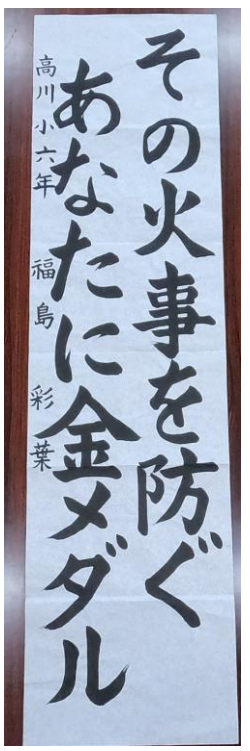 その火事を防ぐ
あなたに金メダル
高川小六年 福島彩葉